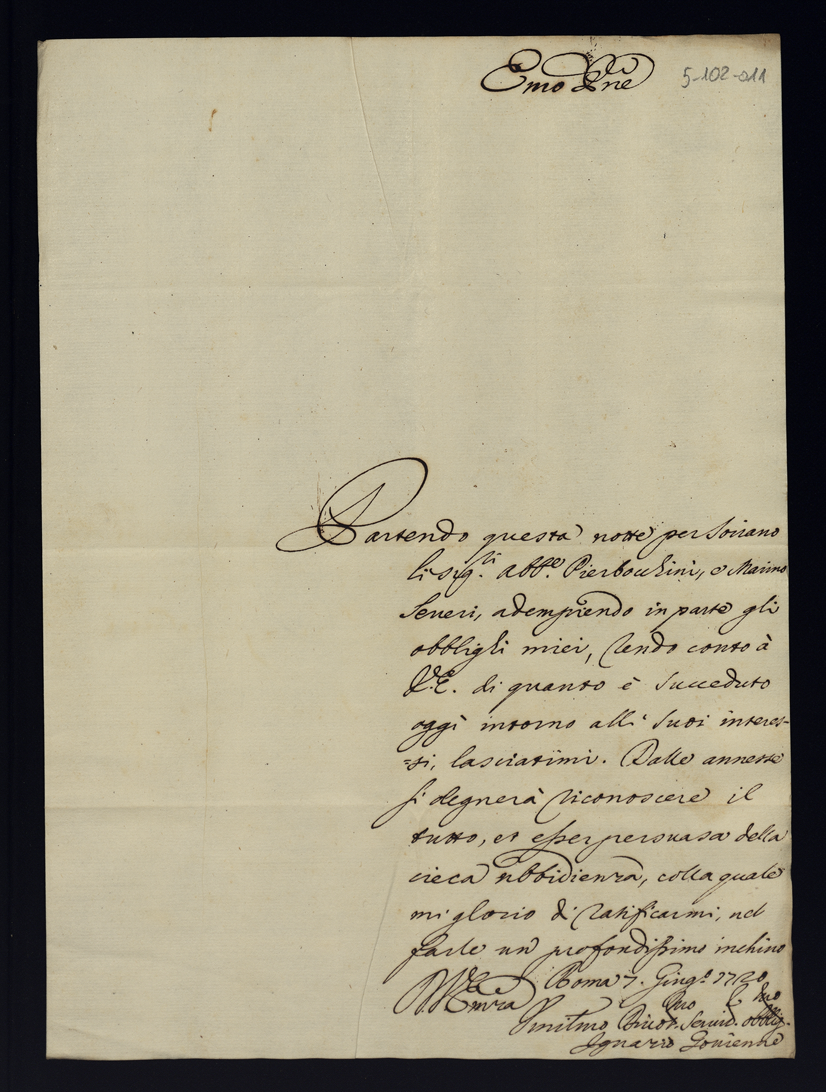 Emo Pre
5-102-011
Partendo questa notte per Soriano
li sig.ri abb.e Pierbocchini, e Marino
Severi, adempiendo in parte gli
obbligli miei, rendo conto à
V.E. di quanto è succeduto
oggi intorno alli suoi interes-
=si, lasciatimi. Dalle annesse
si degnerà riconoscere il
tutto, et esser persuasa della
cieca ubbidienza, colla quale
mi glorio di ratificarmi, nel
farle un profondissimo inchino
Roma 7. Giug.o 1720
V. Emza
Umilmo Divot.mo Servid. obblig.mo
Ignazio